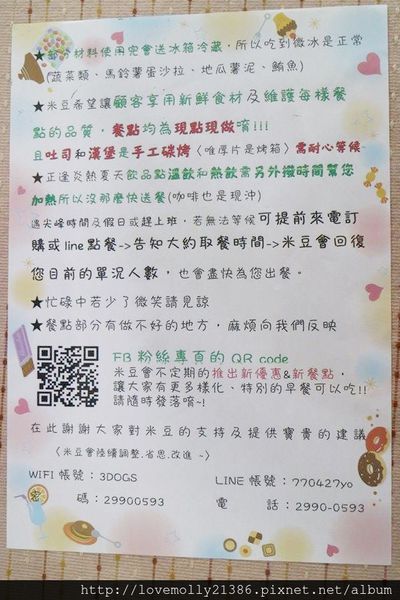 ★部分材料使用完會送冰箱冷藏,所以吃到微冰是正常
(蔬菜類、馬鈴薯蛋沙拉、地瓜薯泥、鮪魚)
★米豆希望讓顧客享用新鮮食材及維護每樣餐
點的品質,餐點均為現點現做唷!!!
且吐司和漢堡是手工碳烤〈唯厚片是烤箱〉需耐心等候
★正逢炎熱夏天飲品點溫飲和熱飲需另外撥時間幫您
加熱所以沒那麼快送餐(咖啡也是現沖)
遇尖峰時間及假日或趕上班,若無法等候可提前來電訂
購或line點餐->告知大約取餐時間->米豆會回復
您目前的單況人數,也會盡快為您出餐。
★忙碌中若少了微笑請見諒
★餐點部分有做不好的地方,麻煩向我們反映
FB 粉絲專頁的 QR code
米豆會不定期的推出新優惠&新餐點,
讓大家有更多樣化、特別的早餐可以吃!!
請隨時發落唷~!
在此謝謝大家對米豆的支持及提供寶貴的建議
〈米豆會陸續調整.省思.改進 ~〉
WIFI 帳號:3DOGS
LINE 帳號:770427yo
密 碼:29900593
電 話:2990-0593
http://lovemolly21386.pixnet.net/album